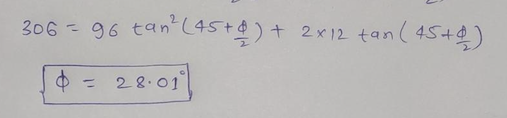 306 = 96 tan²(45+ϕ/2) + 2×12 tan(45+ϕ/2)
ϕ = 28.01°